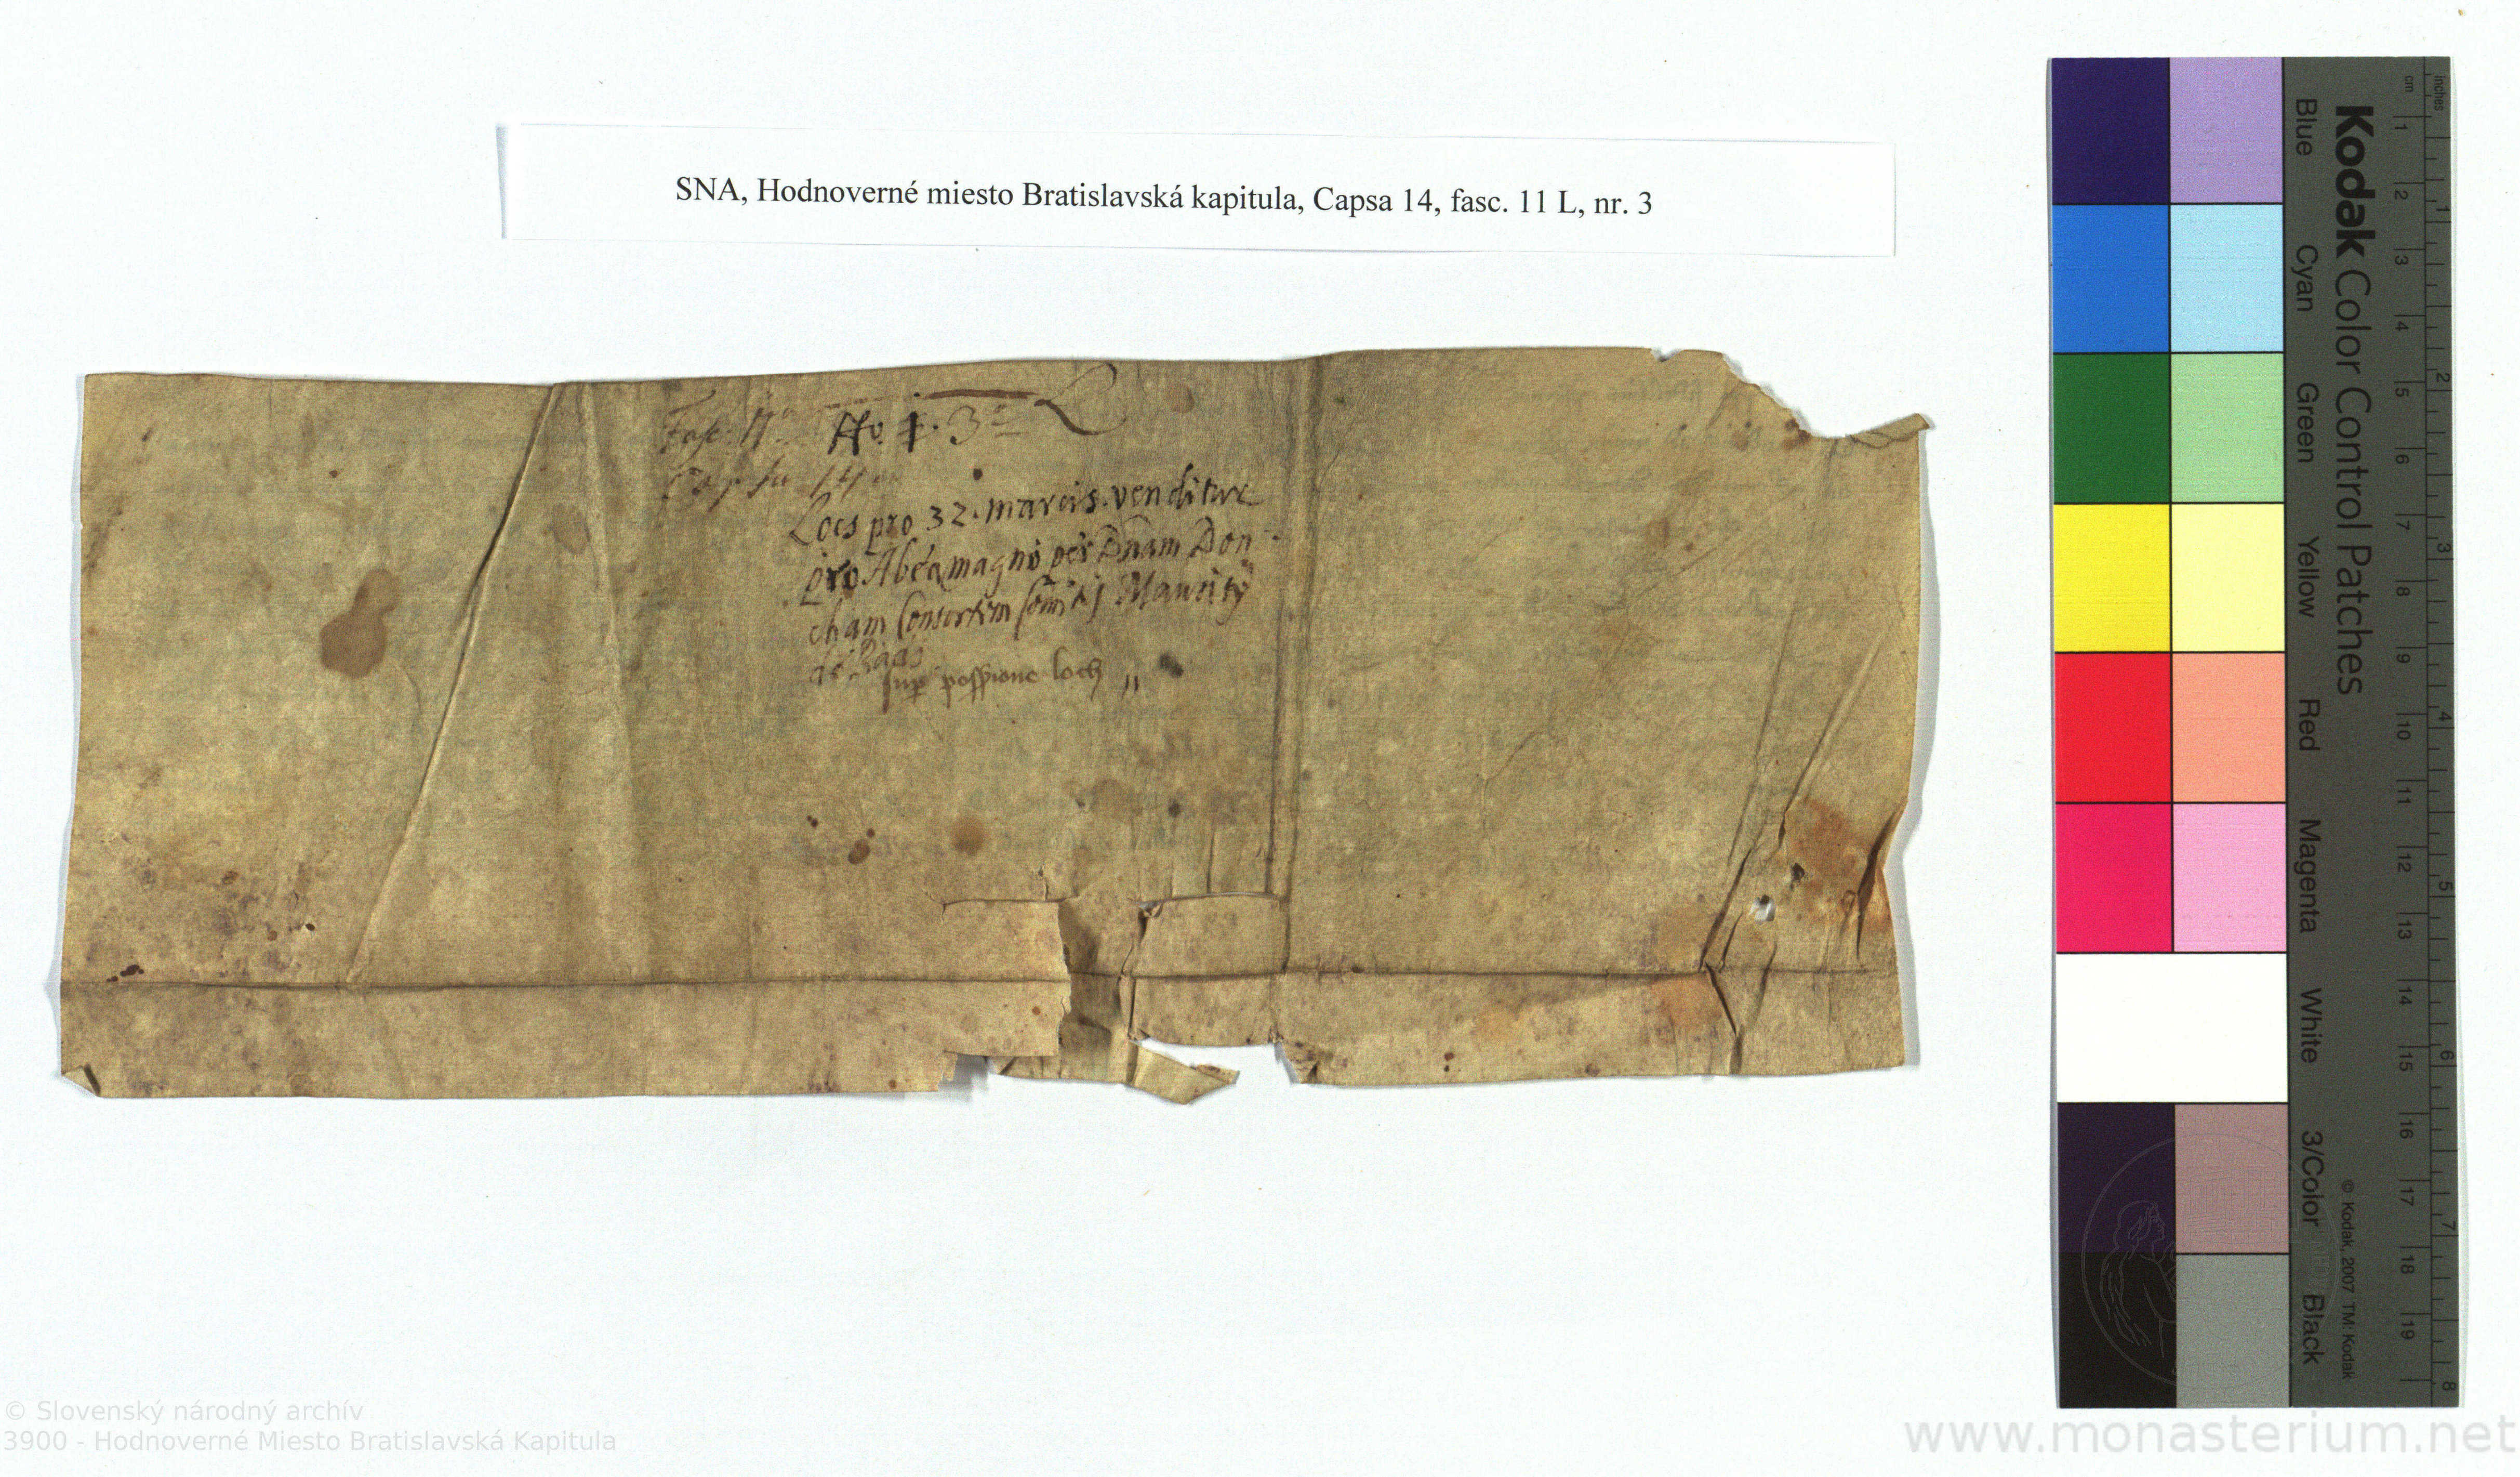 SNA, Hodnoverné miesto Bratislavská kapitula, Capsa 14, fasc. 11 L, nr. 3
Fasc. 11. No. 1. 3 L
Capsa 14
Locs pro 32. marcis. venditur
pro Abéa magno per Dnam Don-
cham Consortem Comitis Maurity
de
sup possione loch
Kodak Color Control Patches
Blue Cyan Green Yellow Red Magenta White 3/Color Black
inches 1 2 3 4 5 6 7 8
cm 1 2 3 4 5 6 7 8 9 10 11 12 13 14 15 16 17 18 19
© Kodak, 2007 TM: Kodak
© Slovenský národný archív
3900 - Hodnoverné Miesto Bratislavská Kapitula
www.monasterium.net